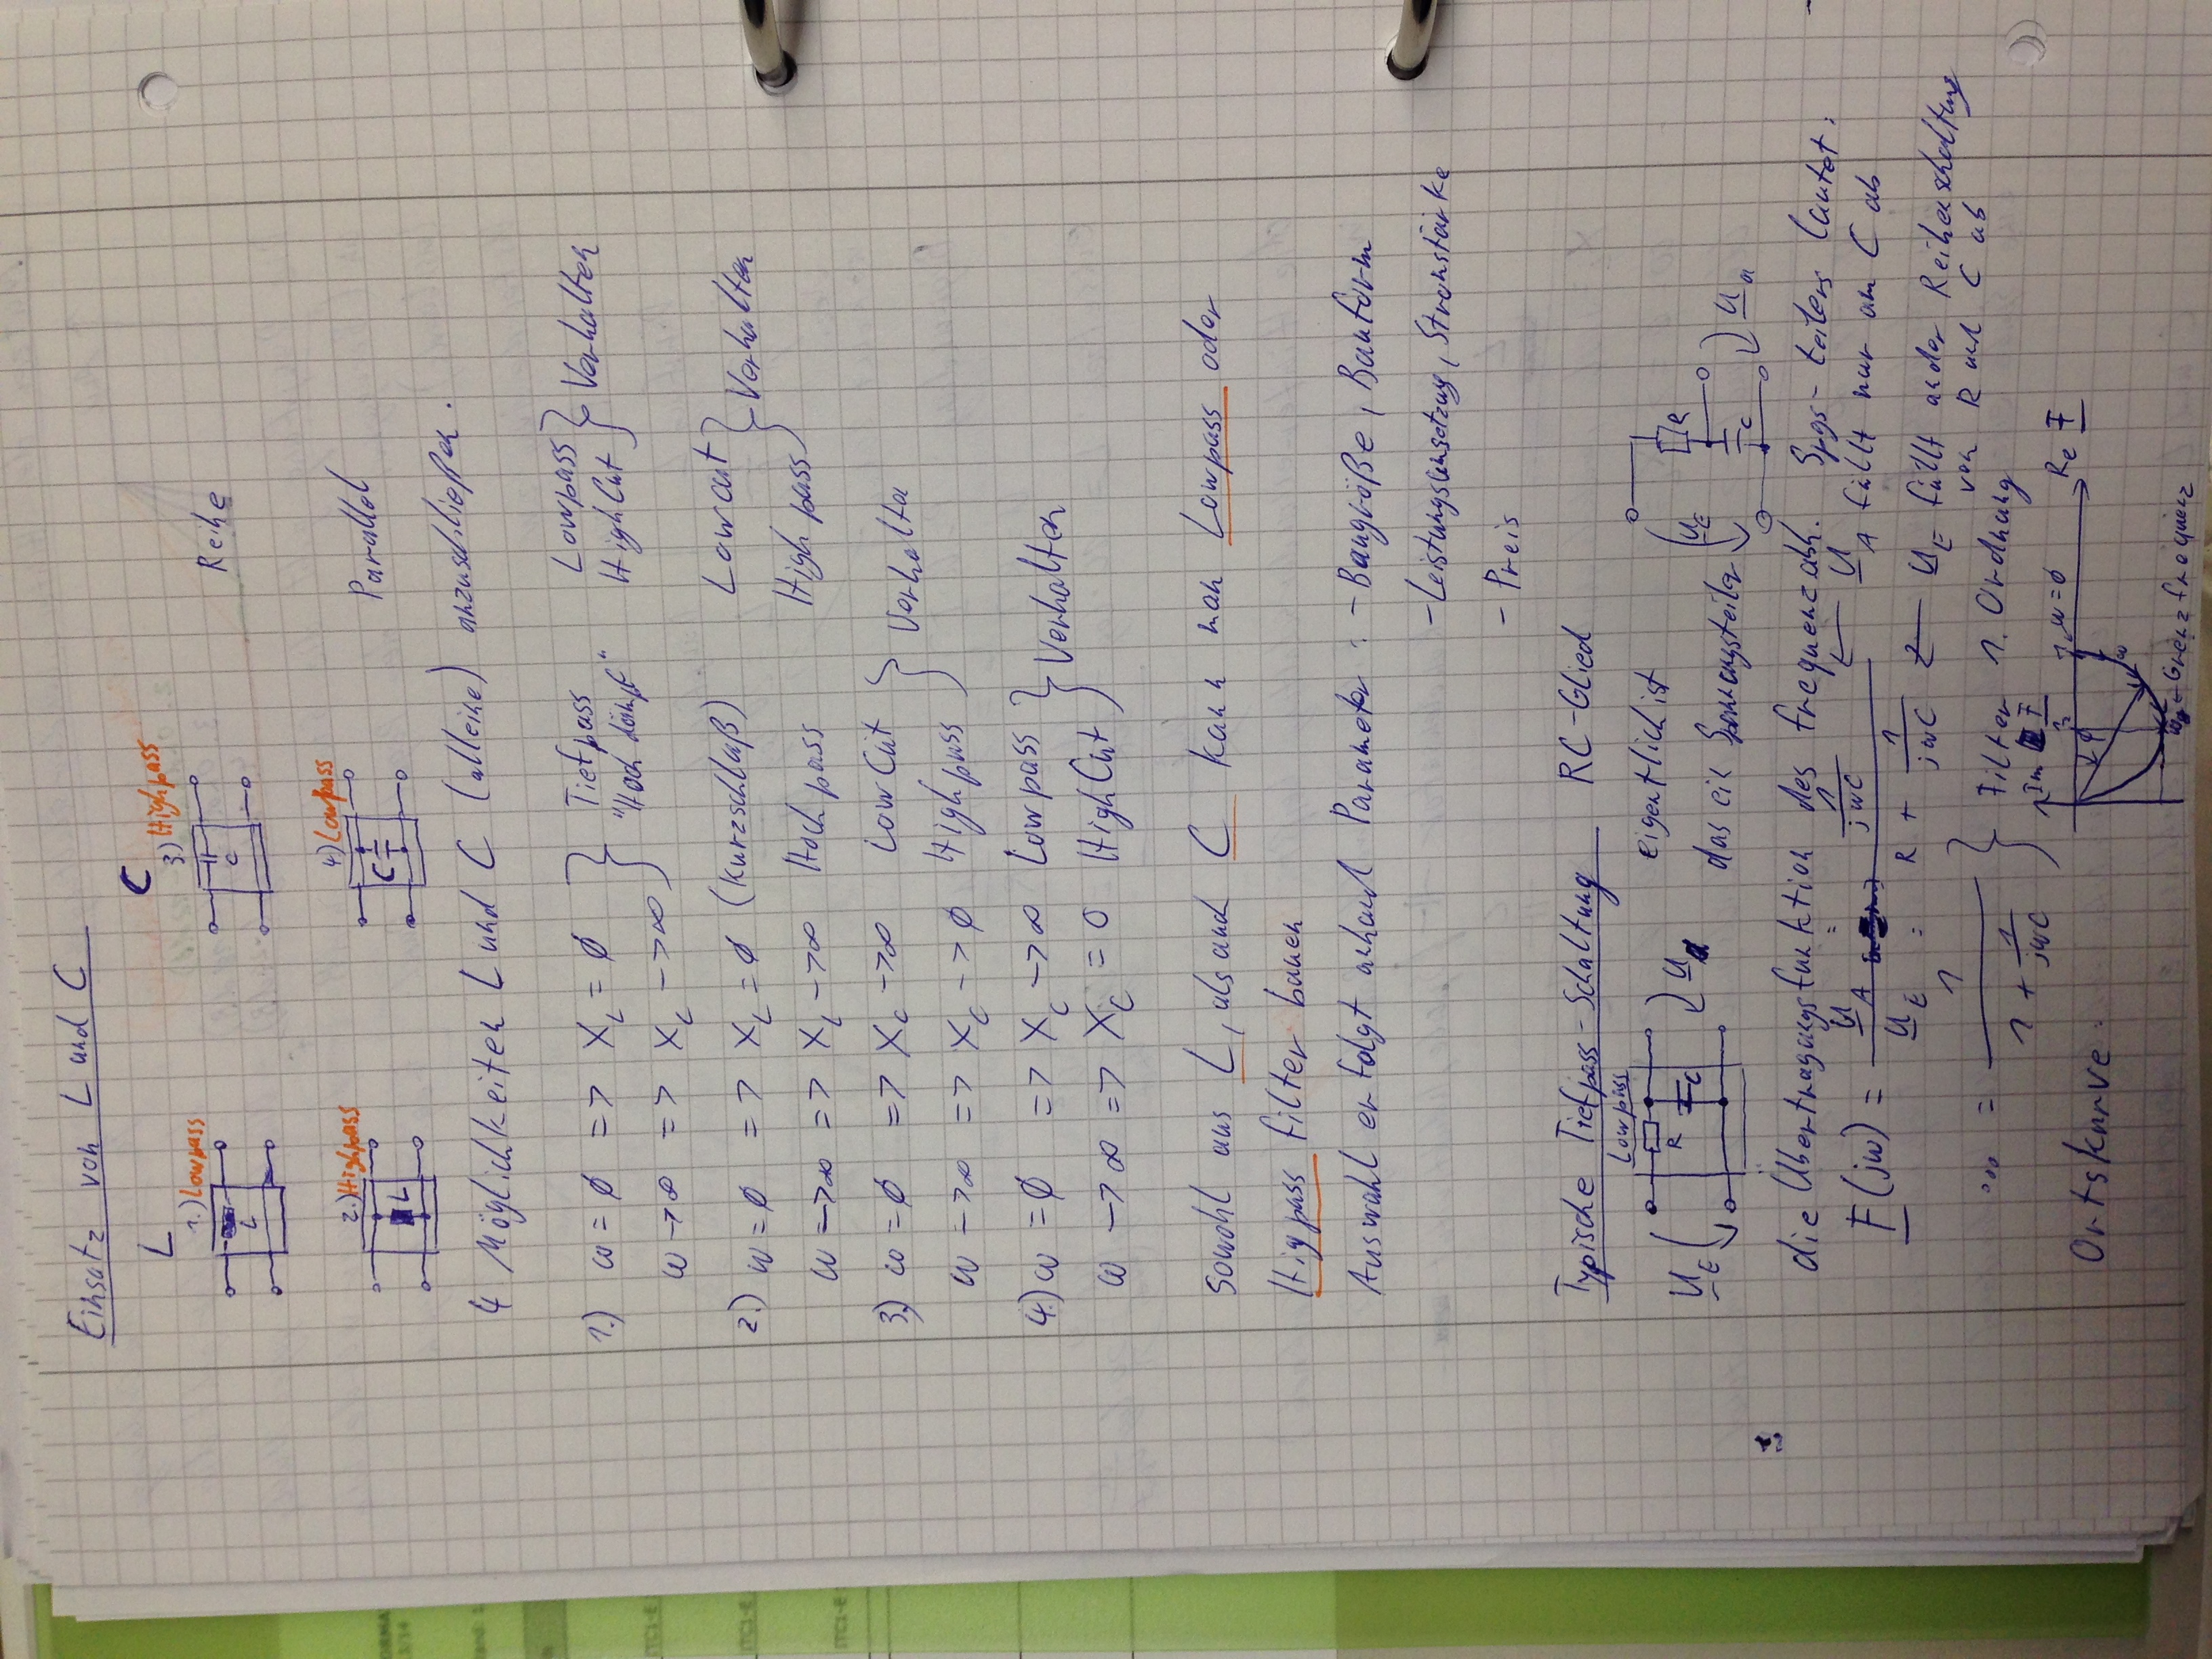 Einsatz von L und C
L
C
1.) Lowpass
3.) Highpass
L
C
Reihe
2.) Highpass
4.) Lowpass
L
C
Parallel
4 Möglichkeiten L und C (alleine) anzuschließen.
1.) ω = ∅ => X_L = ∅ } Tiefpass Lowpass } Verhalten
ω -> ∞ => X_L -> ∞ "Hoch dämpf" HighCut
2.) ω = ∅ => X_L = ∅ (Kurzschluß) Lowcut } Verhalten
ω -> ∞ => X_L -> ∞ Hochpass High pass
3.) ω = ∅ => X_C -> ∞ LowCut } Verhalten
ω -> ∞ => X_C -> ∅ Highpass
4.) ω = ∅ => X_C -> ∞ Lowpass } Verhalten
ω -> ∞ => X_C = 0 HighCut
sowohl aus L, als auch C kann man Lowpass oder
Higpass filter bauen
Auswahl erfolgt anhand Parameter : - Baugröße, Bauform
- Leistungsumsetzung, Stromstärke
- Preis
Typische Tiefpass-Schaltung RC-Glied
Lowpass
U_E R C U_a
eigentlich ist
das ein Spannungsteiler
U_E R C U_a
die Übertragungsfunktion des frequenzabh. Spgs-teilers lautet:
F(jω) = U_A / U_E = (1/jωC) / (R + 1/jωC) <- U_A fällt nur am C ab
<- U_E fällt an der Reihenschaltung
von R und C ab
... = 1 / (1 + 1/jωC) } Filter 1. Ordnung
Im F
1 ω=∅ Re F
Ortskurve:
φ
ω
ω_g <- Grenzfrequenz